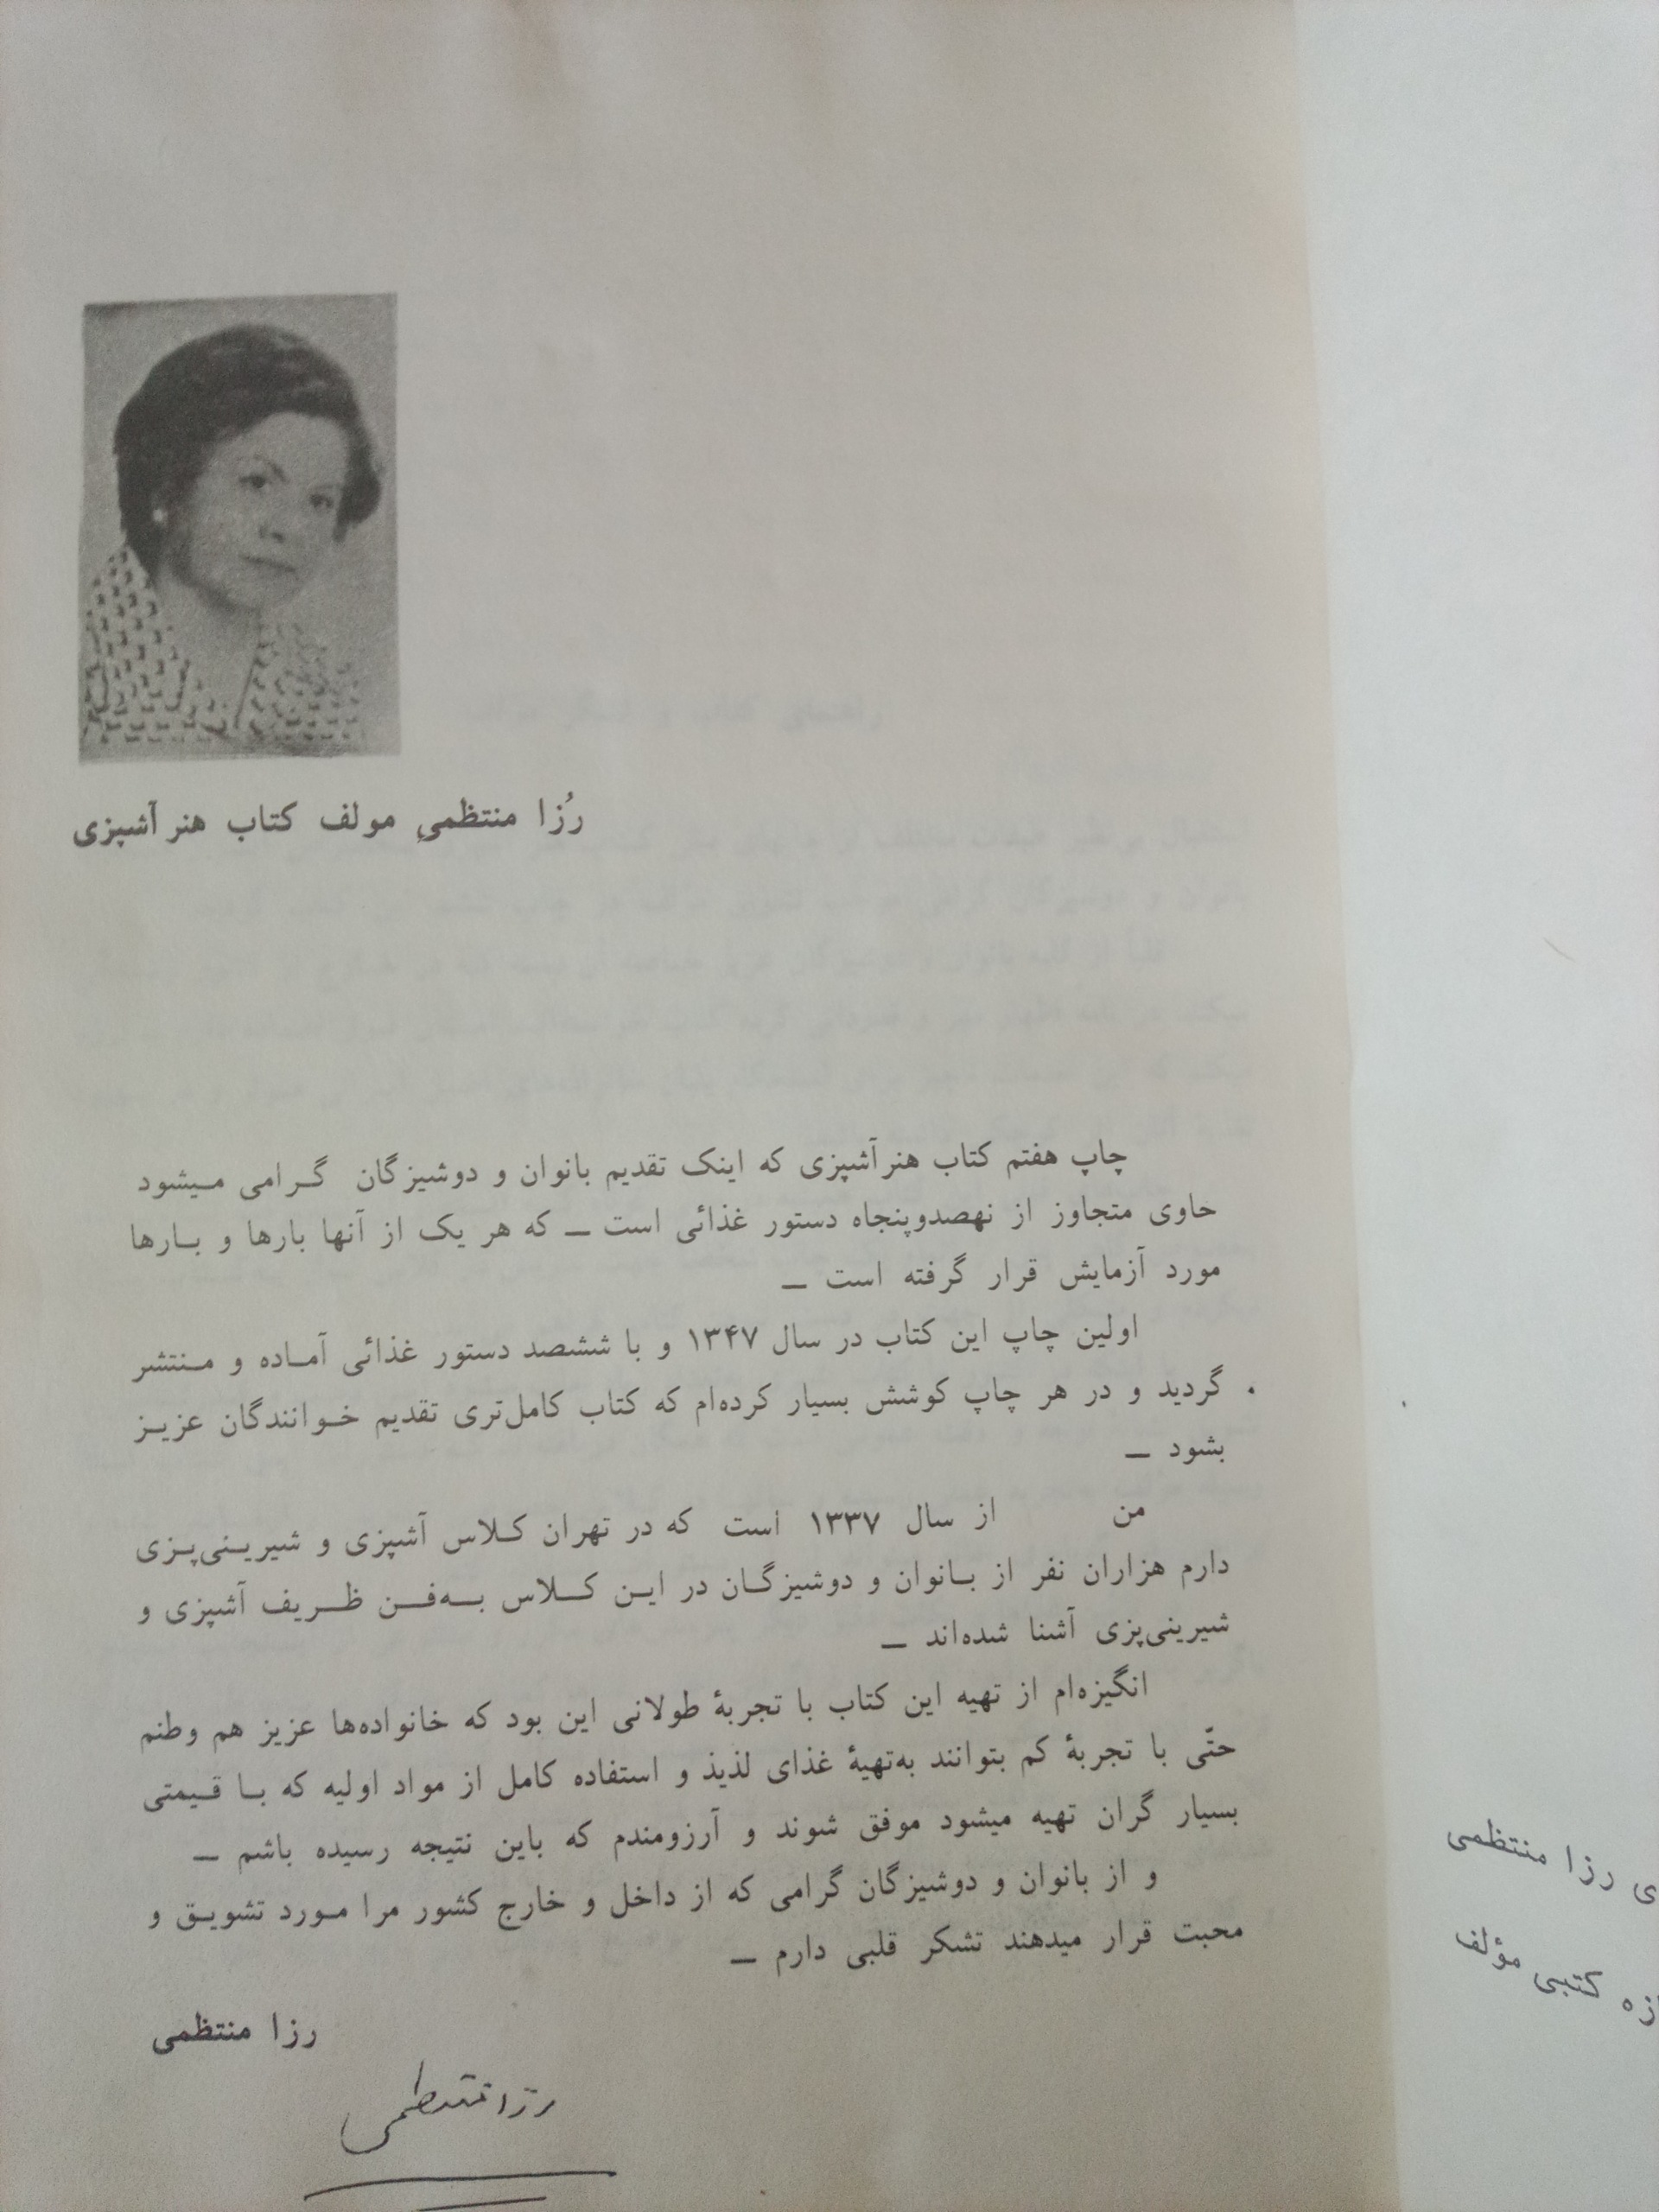 رُزا منتظمی مولف کتاب هنر آشپزی
چاپ هفتم کتاب هنرآشپزی که اینک تقدیم بانوان و دوشیزگان گرامی میشود
حاوی متجاوز از نهصدوپنجاه دستور غذائی است ــ که هر یک از آنها بارها و بارها
مورد آزمایش قرار گرفته است ــ
اولین چاپ این کتاب در سال ۱۳۴۷ و با ششصد دستور غذائی آماده و منتشر
گردید و در هر چاپ کوشش بسیار کرده‌ام که کتاب کامل‌تری تقدیم خوانندگان عزیز
بشود ــ
من از سال ۱۳۳۷ است که در تهران کلاس آشپزی و شیرینی‌پزی
دارم هزاران نفر از بانوان و دوشیزگان در این کلاس به‌فن ظریف آشپزی و
شیرینی‌پزی آشنا شده‌اند ــ
انگیزه‌ام از تهیه این کتاب با تجربهٔ طولانی این بود که خانواده‌ها عزیز هم وطنم
حتّی با تجربهٔ کم بتوانند به‌تهیهٔ غذای لذیذ و استفاده کامل از مواد اولیه که با قیمتی
بسیار گران تهیه میشود موفق شوند و آرزومندم که باین نتیجه رسیده باشم ــ
و از بانوان و دوشیزگان گرامی که از داخل و خارج کشور مرا مورد تشویق و
محبت قرار میدهند تشکر قلبی دارم ــ
رزا منتظمی
رزا منتظمی
ی رزا منتظمی
کتبی مؤلف